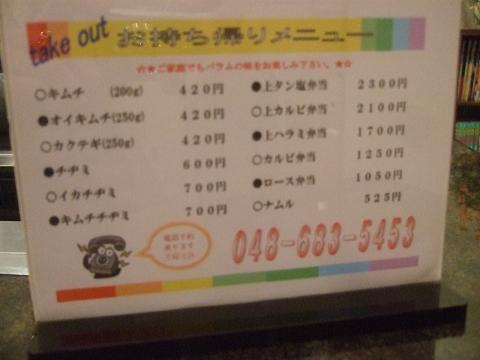 take out お持ち帰りメニュー
☆★ご家庭でもバラムの味をお楽しみ下さい。★☆
○キムチ (200g) 420円
●オイキムチ(250g) 420円
○カクテギ(250g) 420円
●チヂミ 600円
○イカチヂミ 700円
●キムチチヂミ 700円
●上タン塩弁当 2300円
○上カルビ弁当 2100円
●上ハラミ弁当 1700円
○カルビ弁当 1250円
●ロース弁当 1050円
○ナムル 525円
電話予約
承ります
048-683-5453